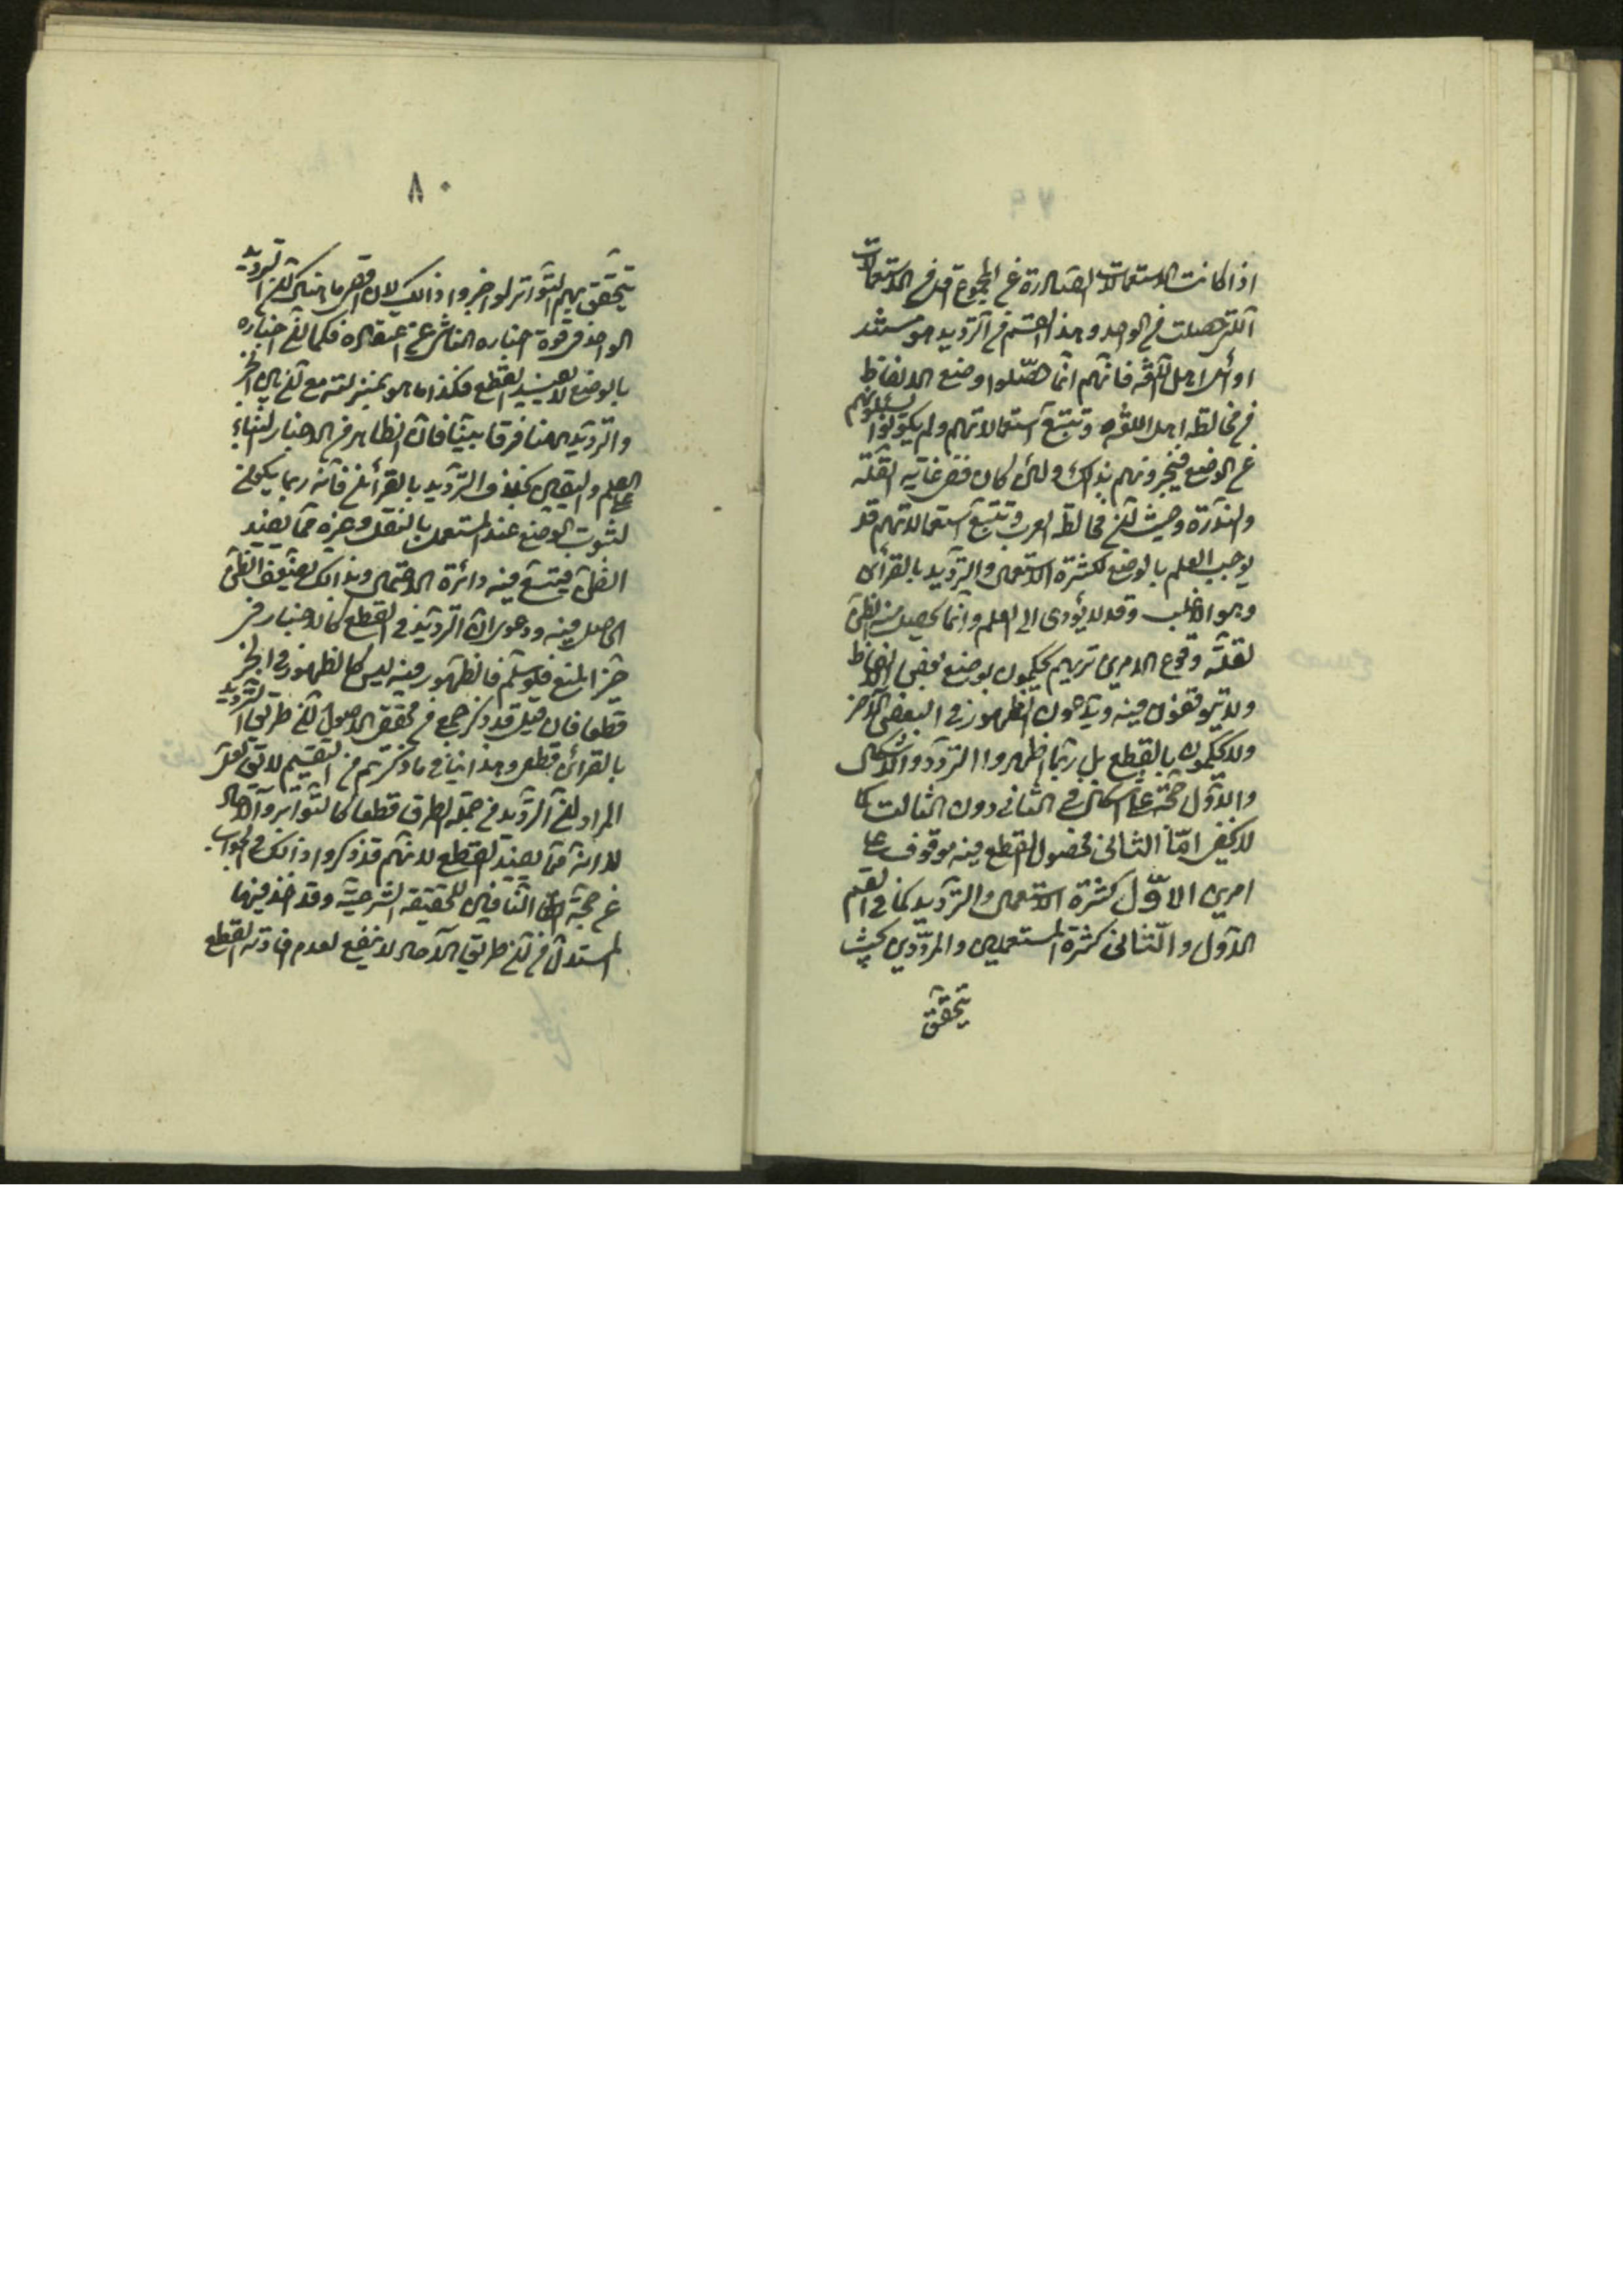 اذا كانت الاستعمالات الصادرة عن المجموع اقل من الاستعمالات
التى حصلت من الواحد و هذا القسم من الترديد هو مستند
اوائل اهل اللغه فانهم انما حصّلوا وضع الالفاظ
من مخالطه اهل اللغه و تتبع استعمالاتهم ولم يكونوا يسئلونهم
عن الوضع فيخبرونهم بذلك ولئن كان ففى غايه القلّه
والندرة وحيث انّ مخالطه العرب و تتبع استعمالاتهم قد
يوجب العلم بالوضع لكثرة الاستعمال والترديد بالقرائن
وهو الاغلب وقد لا يؤدى الى العلم وانما يحصل منه الظن
لقلّه وقوع الامرين تريهم يحكمون بوضع بعض الالفاظ
ولا يتوقفون فيه ويدعون الظهور فى البعض الآخر
ولا يحكمون بالقطع بل ربّما اظهروا التردد والاشكال
والاوّل حجّة على اشكال فى الثانى دون الثالث كما
لا يخفى امّا الثانى فحصول القطع فيه موقوف على
امرين الاوّل كثرة الاستعمال والترديد كما فى القسم
الاوّل والثانى كثرة المستعملين والمردّدين بحيث
يتحقق
٨٠
يتحقق بهم التواتر لو اخبروا ذلك لان اقصى ما هناك انّ الترديد
الواحد فى قوة اخباره الناشى عن اعتقاده فكما انّ اخباره
بالوضع لا يفيد القطع فكذا ما هو بمنزلته مع انّ بين الخبر
والترديد هنا فرقا بيّنا فانّ الظاهر من الاخبار البناء
على العلم واليقين بخلاف الترديد بالقرائن فانه ربما يكون
لثبوت الوضع عند المستعمل بالنقل وغيره ممّا يفيد
الظنّ فيتسع فيه دائرة الاحتمال وبذلك يضعف الظنّ
الحاصل فيه ودعوى انّ الترديد فى القطع كالاخبار فى
حيّز المنع فلو سلّم فالظهور فيه ليس كالظهور فى الخبر
قطعا فان قيل قد ذكر جمع من محققى الاصول انّ طريق الترديد
بالقرائن قطعى وهذا ينافى ما ذكرتم من التقسيم لا تق لعل
المراد انّ الترديد من جمله الطرق قطعا كالتواتر والآحاد
لا انه ممّا يفيد القطع لانهم قد ذكروا ذلك فى الجواب
عن حجّة النافين للحقيقه الشرعيّه وقد اخذ فيها
المستدل انّ طريق الآحاد لا ينفع لعدم افادته القطع